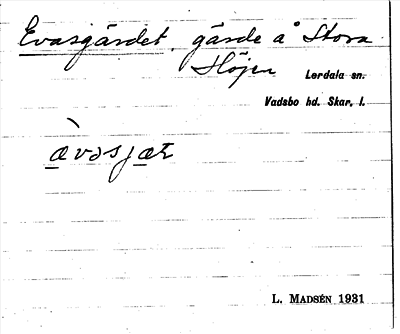 Evasgärdet, gärde å Stora
Höjen
Lerdala sn.
Vadsbo hd. Skar. l.
L. MADSÉN 1931